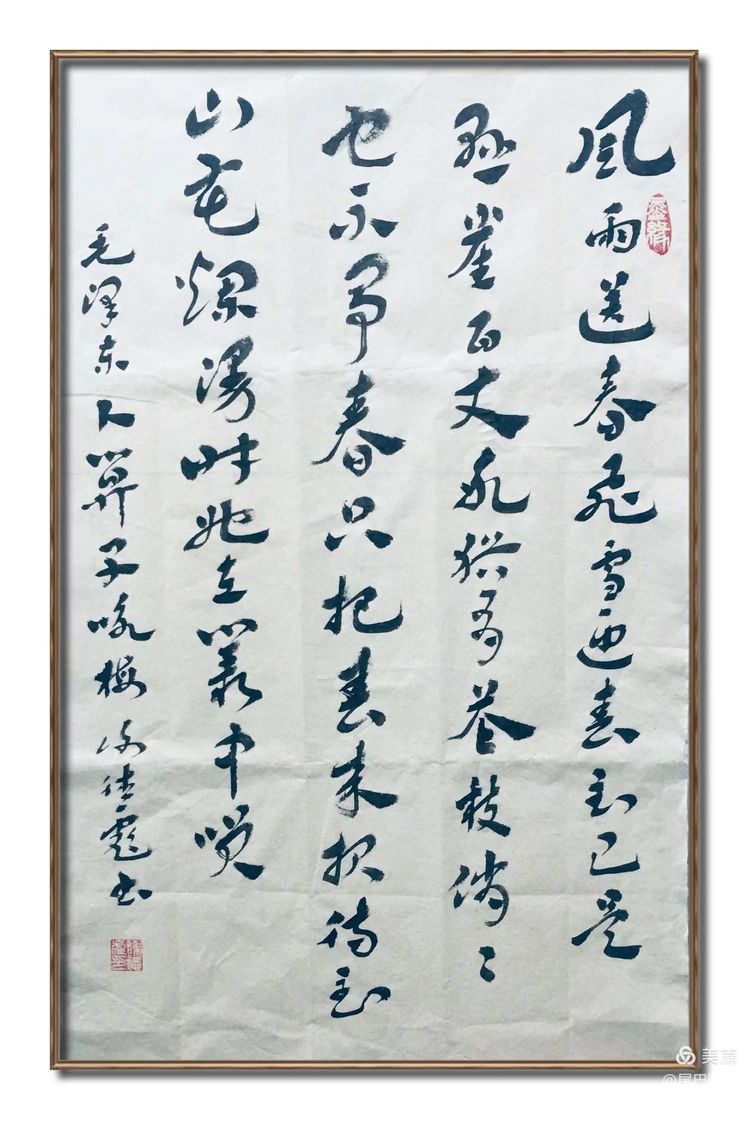 風雨送春飛雪迎春到已是
懸崖百丈冰猶有花枝俏々
也不爭春只把春來报待到
山花爛漫時她在叢中咲
毛澤東卜算子咏梅 书
美篇